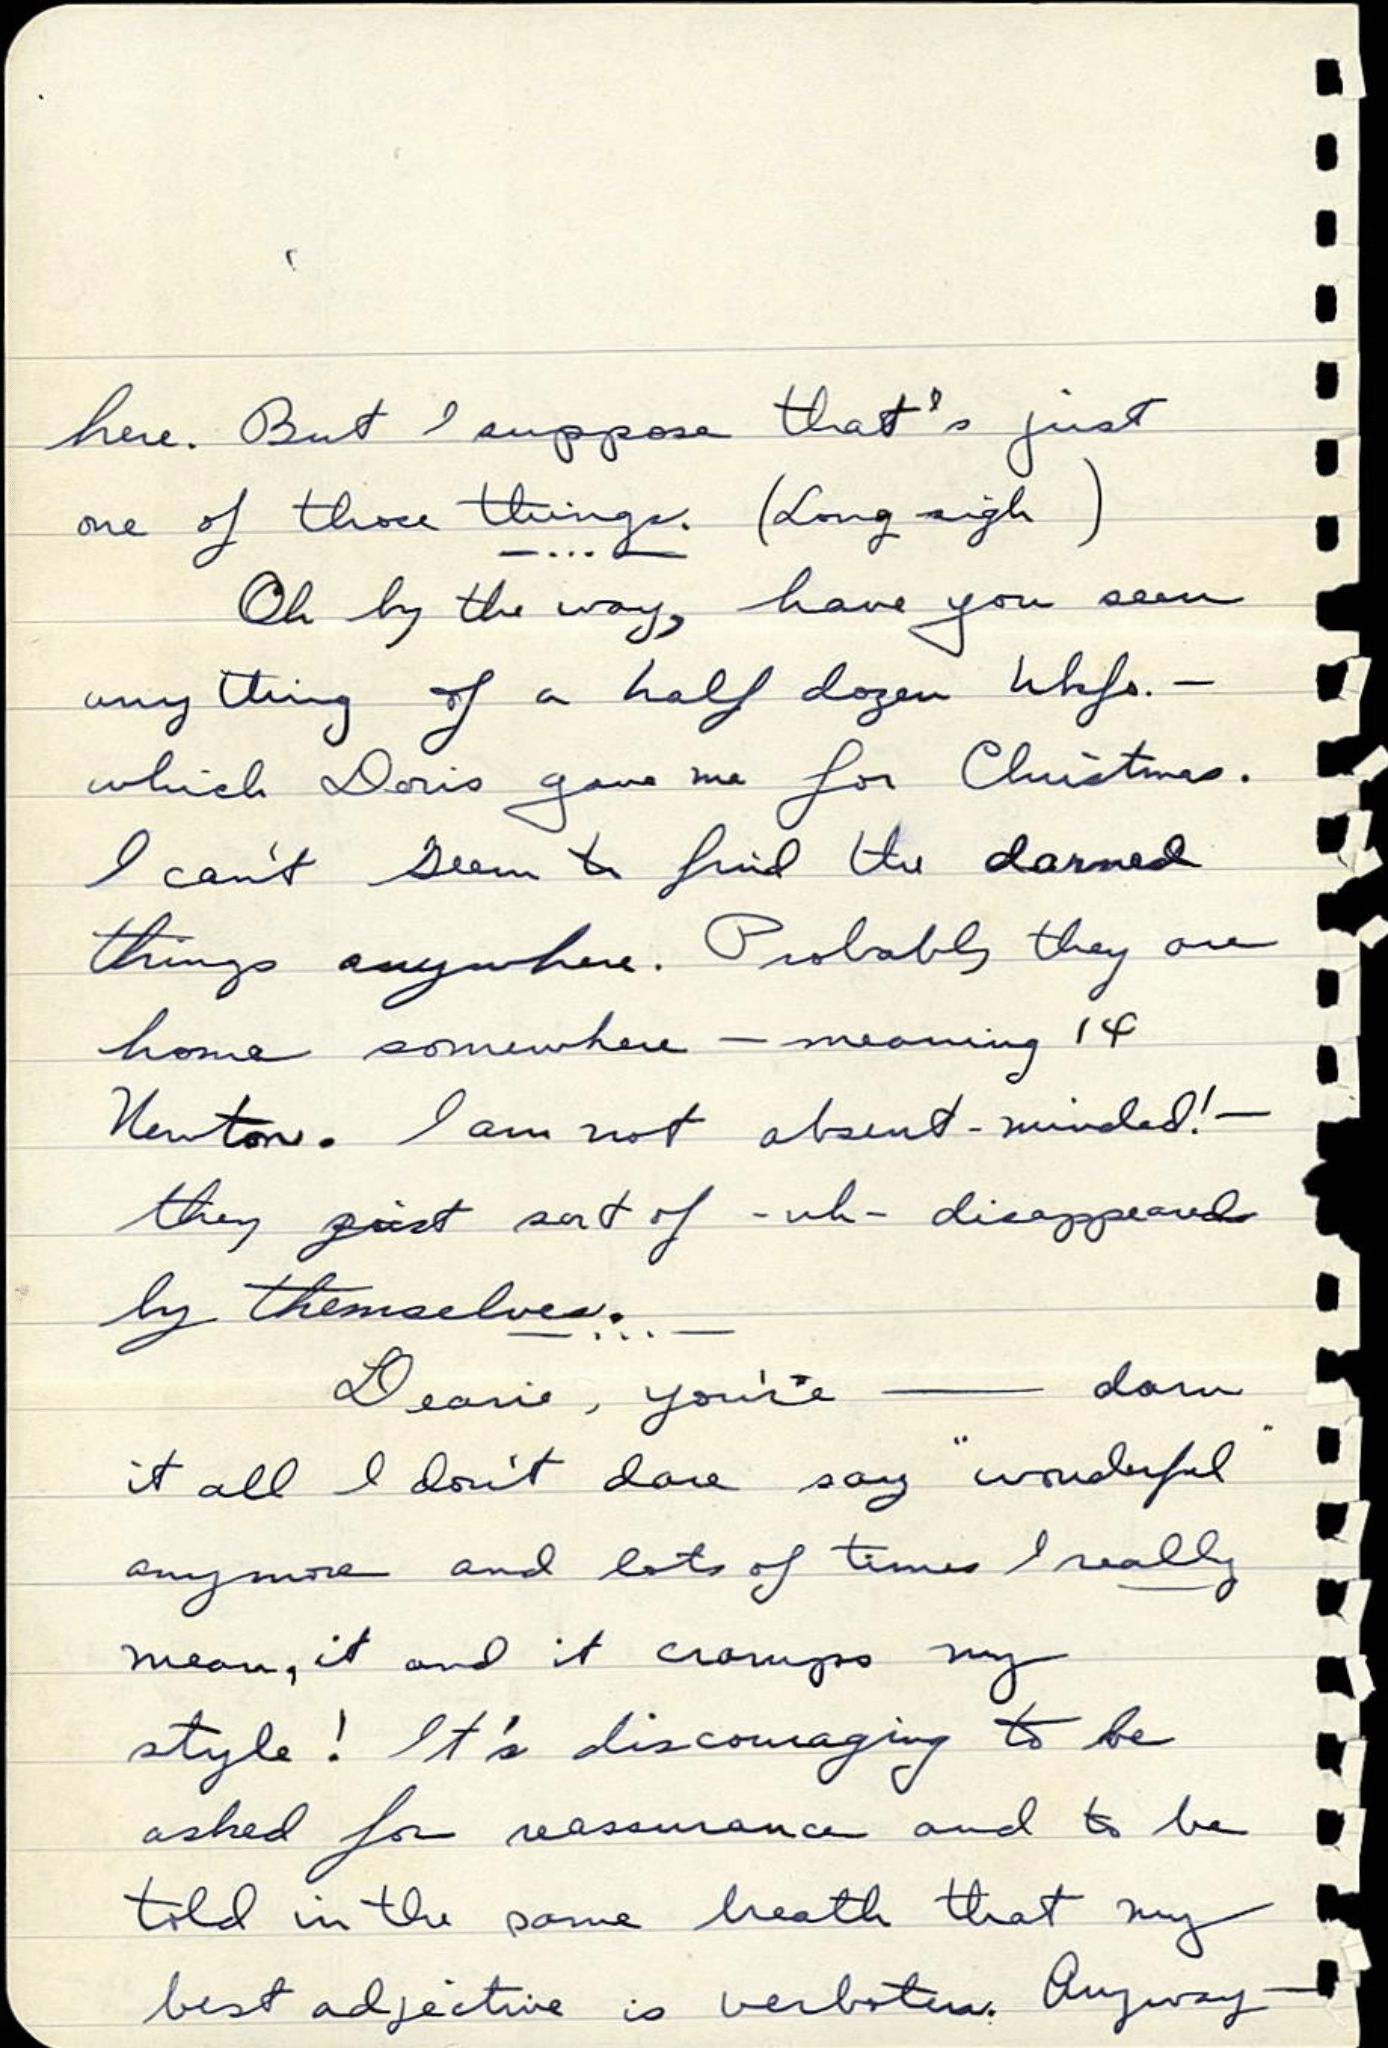 here. But I suppose that's just
one of those things. (Long sigh )
—...—
Oh by the way, have you seen
anything of a half dozen hkfs. —
which Doris gave me for Christmas.
I can't seem to find the darned
things anywhere. Probably they are
home somewhere — meaning 14
Newton. I am not absent-minded! —
they just sort of -uh- disappeared
by themselves.
—...—
Dearie, you're —— darn
it all I don't dare say "wonderful"
anymore and lots of times I really
mean, it and it cramps my
style! It's discouraging to be
asked for reassurance and to be
told in the same breath that my
best adjective is verboten. Anyway —